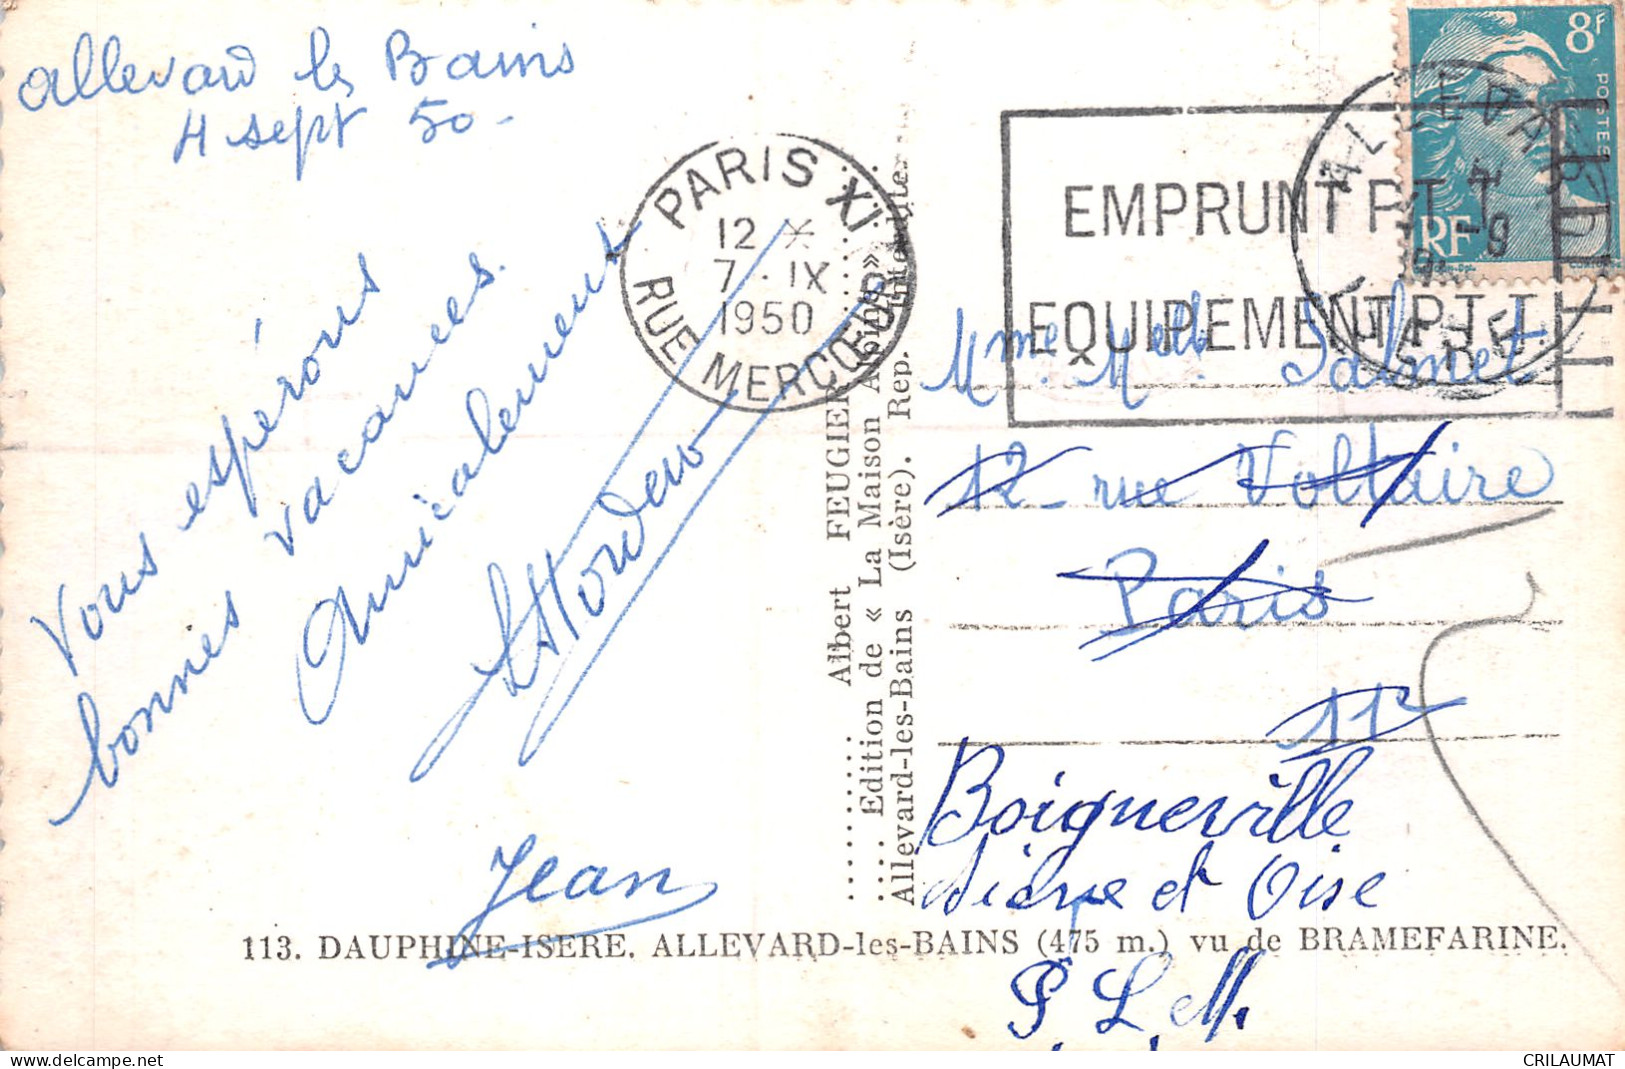 allevard les Bains
4 sept 50-
Vous espérons
bonnes vacances.
Amicalement
Jean
PARIS XI
12 *
7 - IX
1950
RUE MERCŒUR
EMPRUNT P.T.T.
EQUIPEMENT P.T.T.
8F
POSTES
RF
ALLEVARD
4 -9
ISERE
Albert FEUGIER
Edition de « La Maison Alpine »
Allevard-les-Bains (Isère). Rep. Interdite
Mme. Melle
12 - rue Voltaire
Paris
11e
Boigneville
Seine et Oise
P. L. M.
113. DAUPHINE-ISERE. ALLEVARD-les-BAINS (475 m.) vu de BRAMEFARINE.
delcampe.net
CRILAUMAT